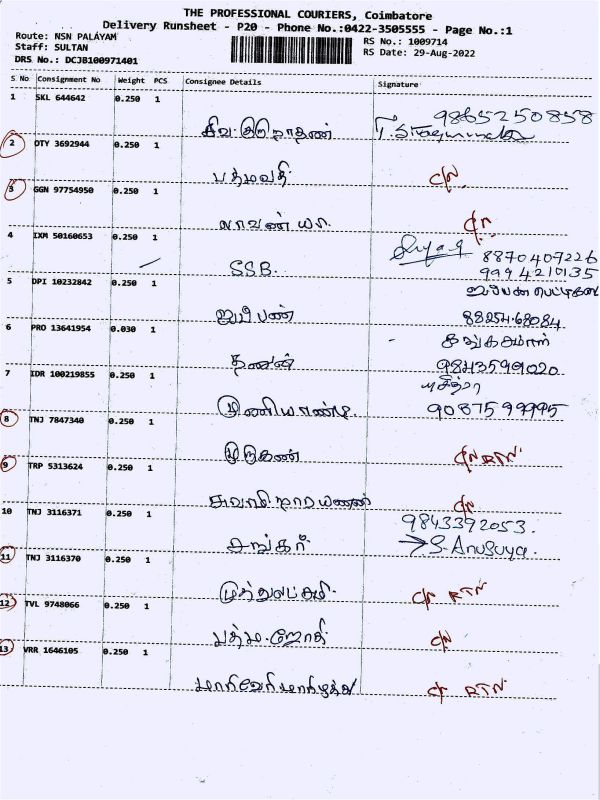 THE PROFESSIONAL COURIERS, Coimbatore
Delivery Runsheet - P20 - Phone No.:0422-3505555 - Page No.:1
Route: NSN PALAYAM
RS No.: 1009714
Staff: SULTAN
RS Date: 29-Aug-2022
DRS No.: DCJB100971401
S No Consignment No Weight PCS Consignee Details Signature
1 SKL 644642 0.250 1
9865250858
2 OTY 3692944 0.250 1
பத்மாவதி C/N
3 GGN 97754950 0.250 1
லாவண்யா C/N
4 IXM 50160653 0.250 1
8870407226
SSB 9994210135
5 DPI 10232842 0.250 1
ஐயப்பன் 88254-68084
6 PRO 13641954 0.030 1
9843599020
7 IDR 100219855 0.250 1
முனியாண்டி 9087599995
8 TNJ 7847340 0.250 1
முருகன் C/N RTN
9 TRP 5313624 0.250 1
C/N
10 TNJ 3116371 0.250 1
9843392053.
சங்கர் S. Anusuya.
11 TNJ 3116370 0.250 1
முத்துலட்சுமி C/N RTN
12 TVL 9748066 0.250 1
பத்ம ஜோதி C/N
13 VRR 1646105 0.250 1
C/N RTN